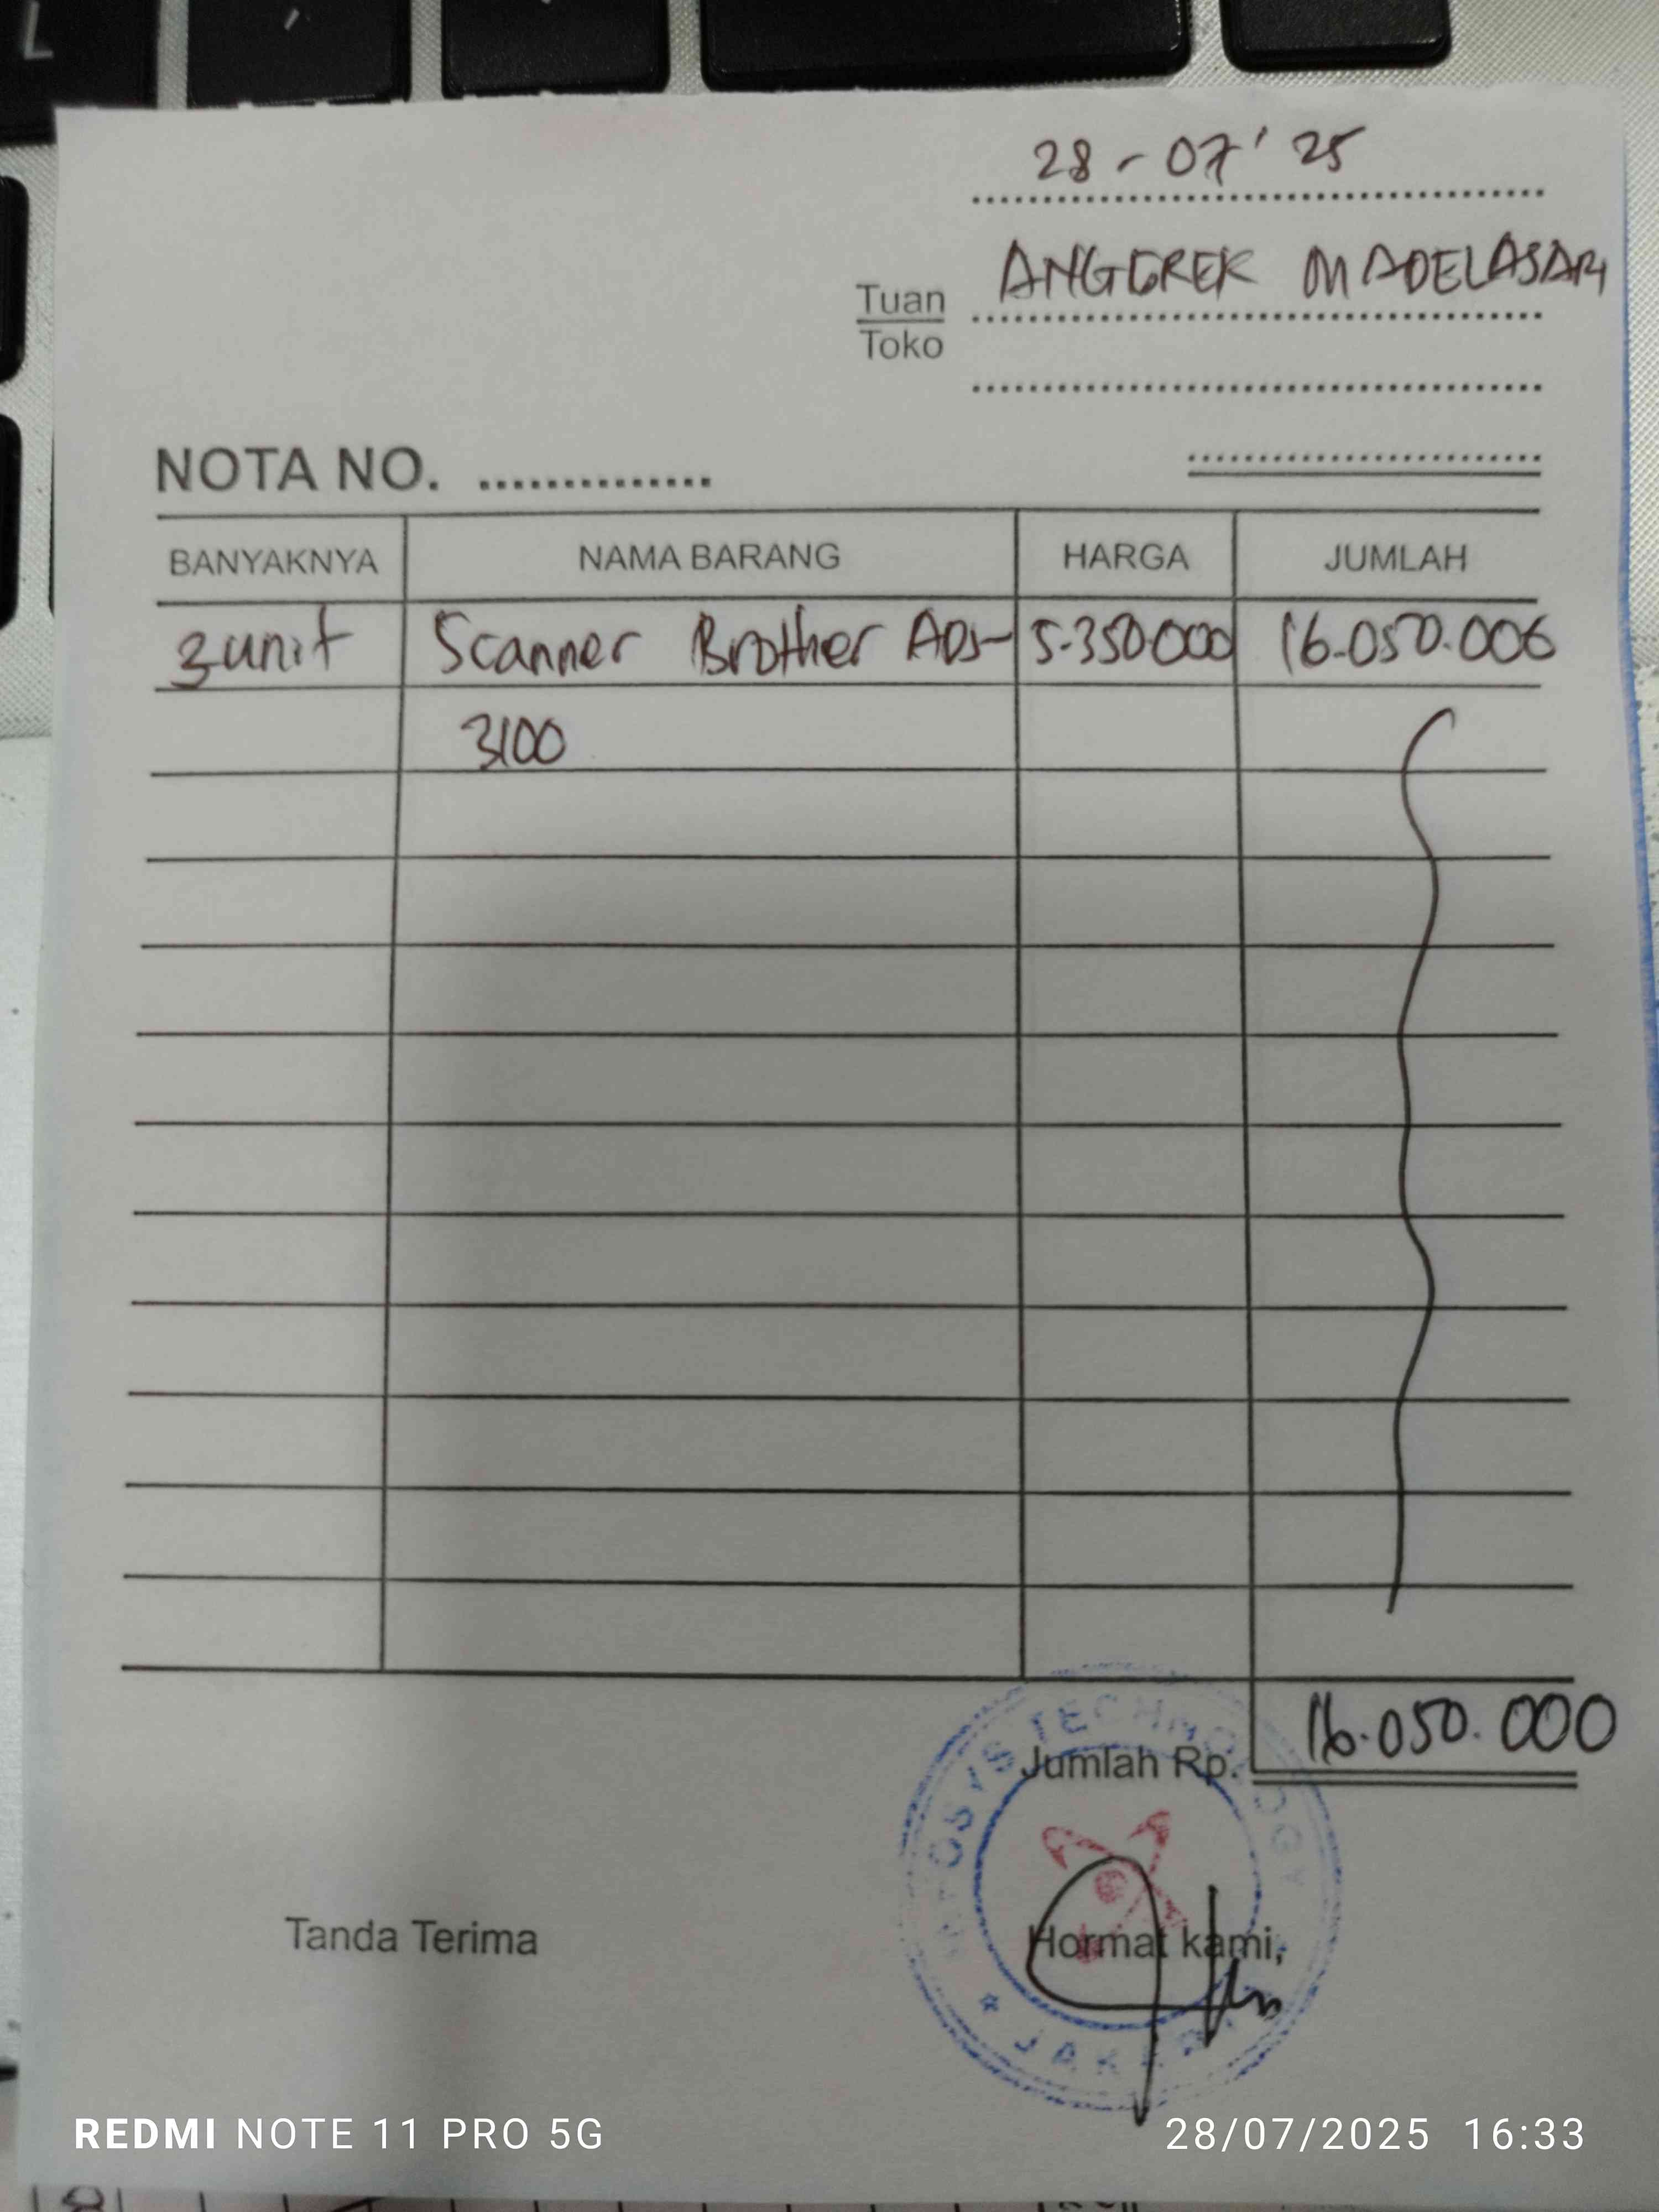 28-07'25
Tuan ANGGREK MADELASARI
Toko
NOTA NO. ..............
BANYAKNYA NAMA BARANG HARGA JUMLAH
3 unit Scanner Brother ADS- 5.350.000 16.050.000
3100
16.050.000
Jumlah Rp.
TECHNOLOGY
Tanda Terima Hormat kami,
JAKARTA
REDMI NOTE 11 PRO 5G 28/07/2025 16:33